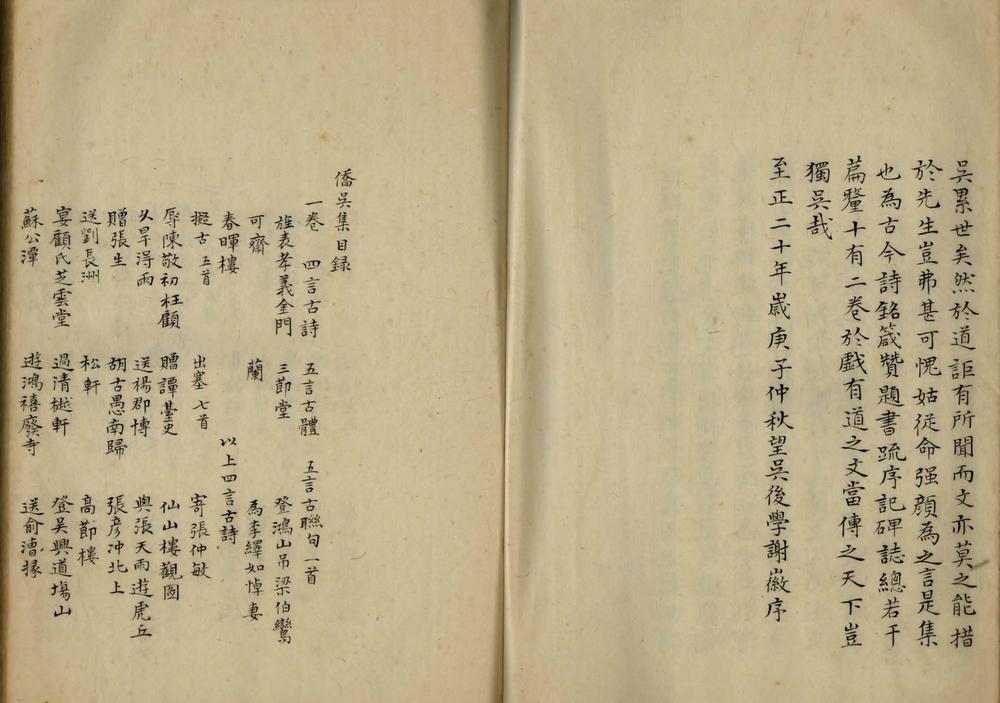 吳累世矣然於道詎有所聞而文亦莫之能措
於先生豈弗甚可愧姑従命强顔為之言是集
也為古今詩銘箴贊題書䟽序記碑誌總若干
篇釐十有二卷於戯有道之文當傳之天下豈
獨吳哉
至正二十年嵗庚子仲秋望吳後學謝徽序
僑吳集目録
一卷 四言古詩 五言古體 五言古聮句一首
旌表孝義金門 三節堂 登鴻山吊梁伯鸞
可齋 蘭 為李繹如悼妻
春暉樓 以上四言古詩
擬古五首 出塞七首 寄張仲敏
辱陳敬初枉顧 贈譚臺史 仙山樓觀圖
久旱淂雨 送楊郡博 與張天雨遊虎丘
贈張生 胡古愚南歸 張彦冲北上
送劉長洲 松軒 髙節樓
宴顧氏芝雲堂 過清樾軒 登吳興道塲山
蘇公潭 遊鴻禧廢寺 送俞漕掾